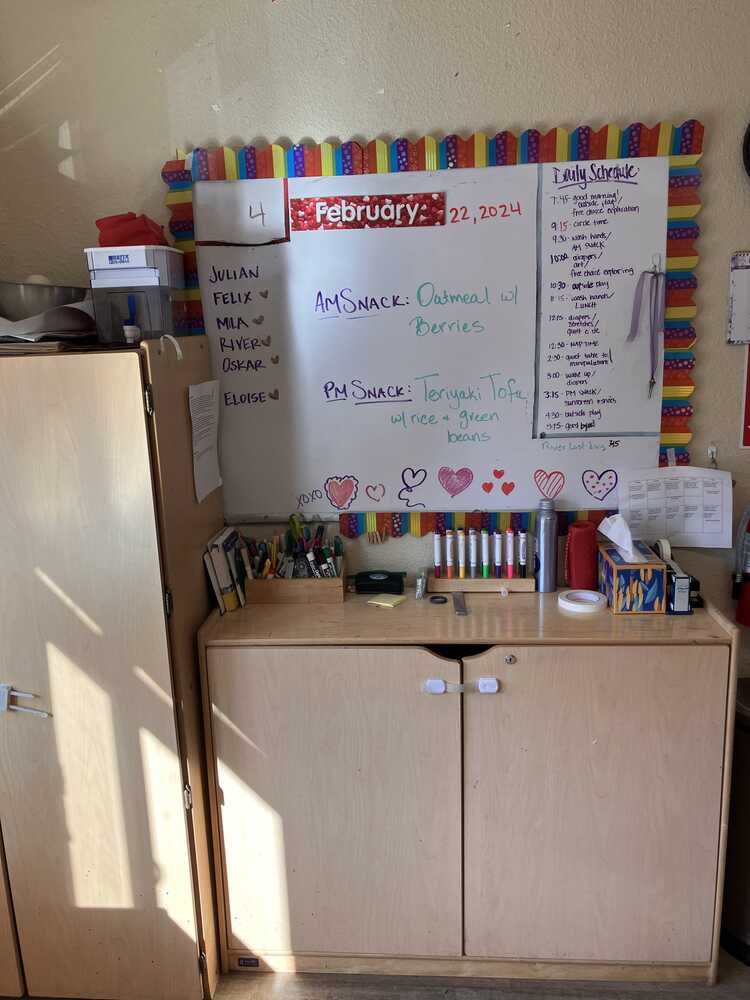 4
February
22, 2024
JULIAN
FELIX
MILA
RIVER
OSKAR
ELOISE
AM SNACK: Oatmeal w/
Berries
PM SNACK: Teriyaki Tofu
w/ rice + green
beans
XOXO
Daily Schedule
7:45- good morning!
outside play/
free choice exploration
9:15- circle time
9:30- wash hands/
AM SNACK
10:00 diapers/
art/
free choice exploring
10:30 outside play
11:15- wash hands/
LUNCH
12:15- diapers/
stretches/
12:30- NAP TIME
2:30- quiet table to
manipulatives
3:00- wake up/
diapers
3:15- PM SNACK/
sunscreen + shoes
4:30- outside play
5:15- good bye!
River Last day